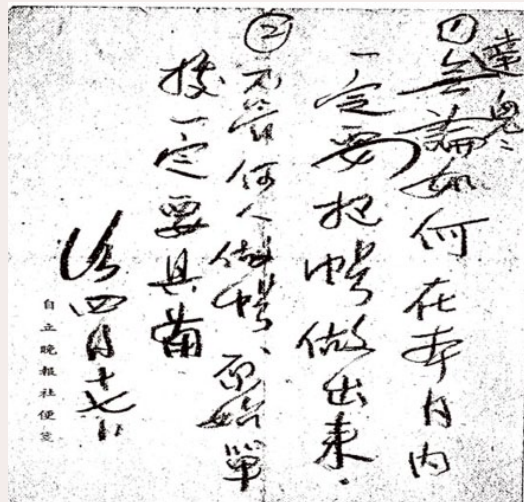 達兒：
①無論如何在本月內
一定要把帳做出來．
②不管何人做帳、原始單
據一定要具備
四月十七日
自立晚報社便箋